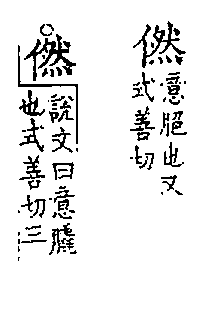 㒄
意脃也又
式善切
㒄
說文曰意膬
也式善切三